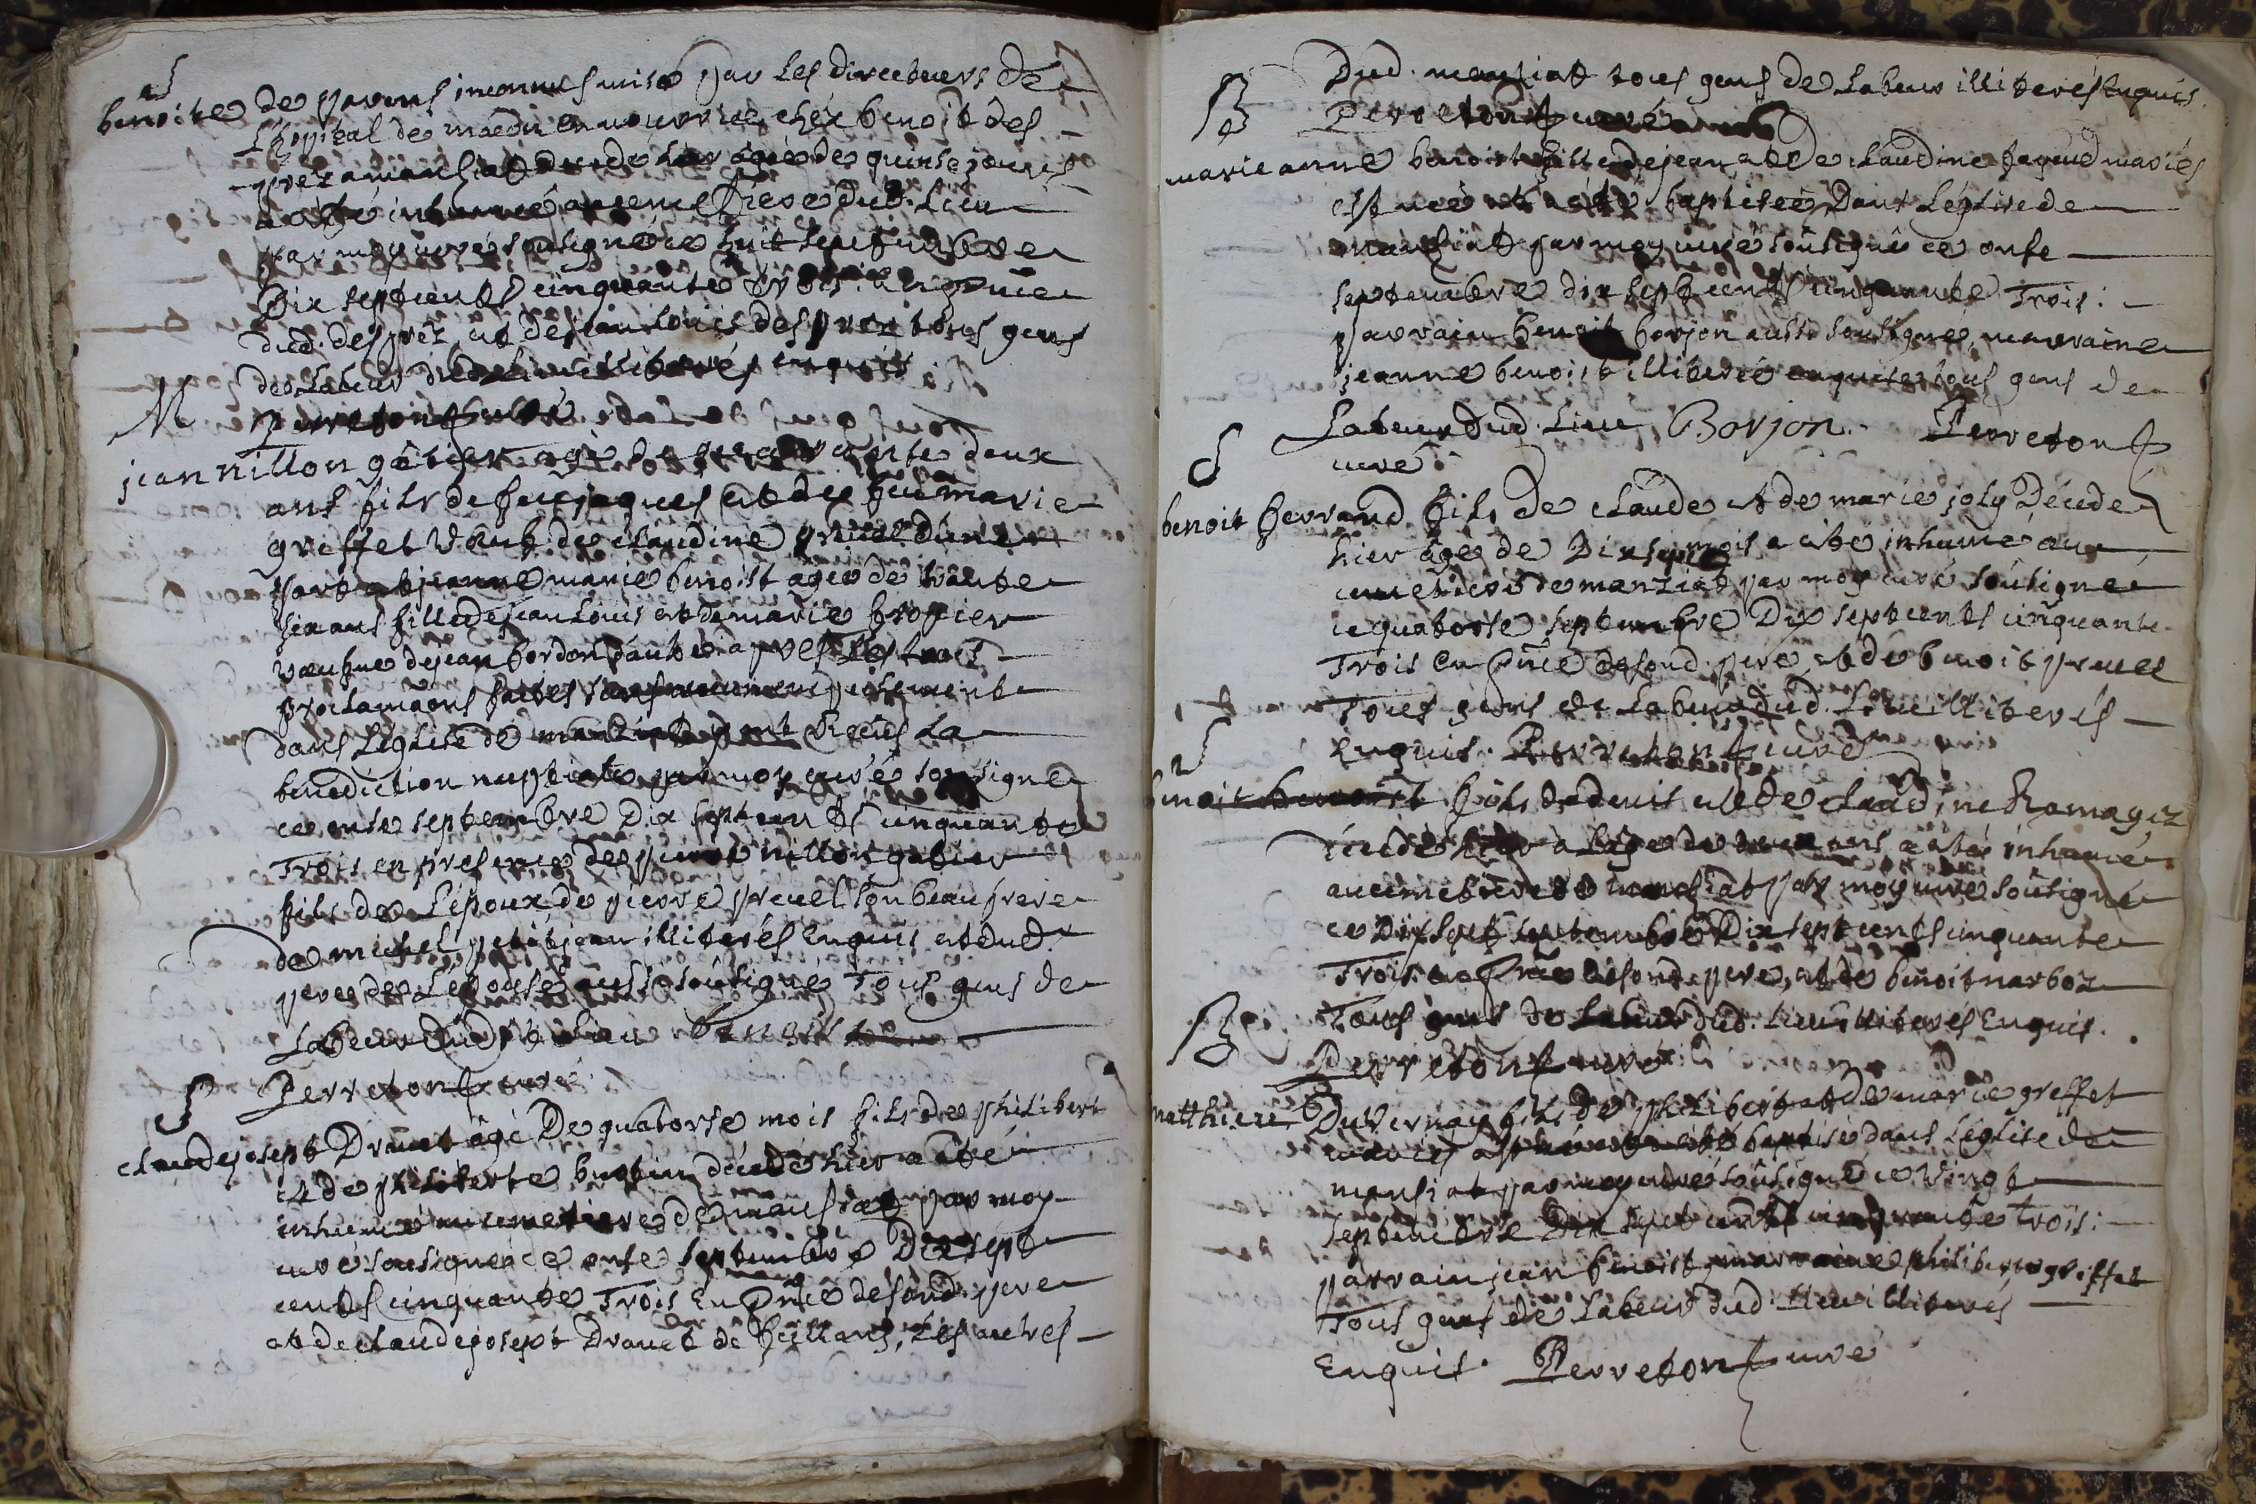 S
benoite de parens inconnus mise par les directeurs de
L'hopital de macon en nourrice chéx benoit des
prez a manziat decede hier agée de quinse jours
a eté inhumé au cemetiere dud. lieu
par moy curé sousigné ce huit septembre
Dix septcents cinquante trois en pnce
dud. desprez et de jean louis desprez tous gens
de Labeur dud. lieu illiterés enquis
M Perreton curé
jean nillon gatier agé de quarante deux
ans fils de feu jaques et de feüe marie
greffet veuf de claudine pruel d'une
part et jeanne marie benoist agée de trante
six ans fille de jean louis et de marie brossier
veufve de jean bordon d'autre apres les trois
proclamaõns faites sans aucun empechement
dans L'eglise de manziat ont reçus la
benediction nuptiale par moy curé sousigné
ce onse septembre Dix septcents cinquante
Trois en presence de pierre nillon gatier
fils de L'epoux de pierre pruel son beau frere
de michel petitjean illiterés Enquis et dud.
pere de L'epouse aussi soûsigné Tous gens de
Labeur dud. lieu benoist
S Perreton curé
claude josept Drouet agé De quatorse mois fils de philibert
et de philiberte decedé hier a eté
inhumé au cemetiere de mansiat par moy
curé sousigné ce onse septembre Dix sept
cents cinquante Trois En pnce de sond. pere
et de claude josept Drouet de les autres
Dud. manziat tous gens de Labeur illiterés Enquis.
B Perreton curé
marie anne benoist fille de jean et de claudine feyeud mariés
est née et a eté baptisée Dans L'eglise de
manziat par moy curé soûsigné ce onse
septembre dix sept cents cinquante Trois:
parrain benoit borjon aussi sousigné, marraine
jeanne benoist illiterée enquise tous gens de
Labeur dud. Lieu Borjon. Perreton
S curé
benoit ferrand fils de claude et de marie joly Décedé
hier âgé de Dix sept mois a eté inhumé au
cemetiere de manziat par moy curé soûsigné
ce quatorse septembre Dix septcents cinquante
Trois en pnce de sond. pere et de benoit pruel
Tous gens de Labeur dud. Lieu illiterés
S Enquis. Perreton curé
benoit benoist fils de denis et de claudine Romagez
decedé hier a L'age de deux ans a eté inhumé
au cemetiere de manziat par moy curé soûsigné
ce Dix sept septembre Dix septcents cinquante
Trois en pnce de sond. pere, et de benoit narboz
Tous gens de Labeur dud. Lieu illiterés Enquis.
B Perreton curé
matthieu Duvernay fils de philibert et de marie greffet
mariés est né et a eté baptisé dans L'eglise de
mansiat par moy curé soûsigné ce Vingt
septembre Dix sept cents cinquante Trois:
parrain jean benoist marraine philiberte greffet
Tous gens de Labeur dud. Lieu illiterés
Enquis. Perreton curé